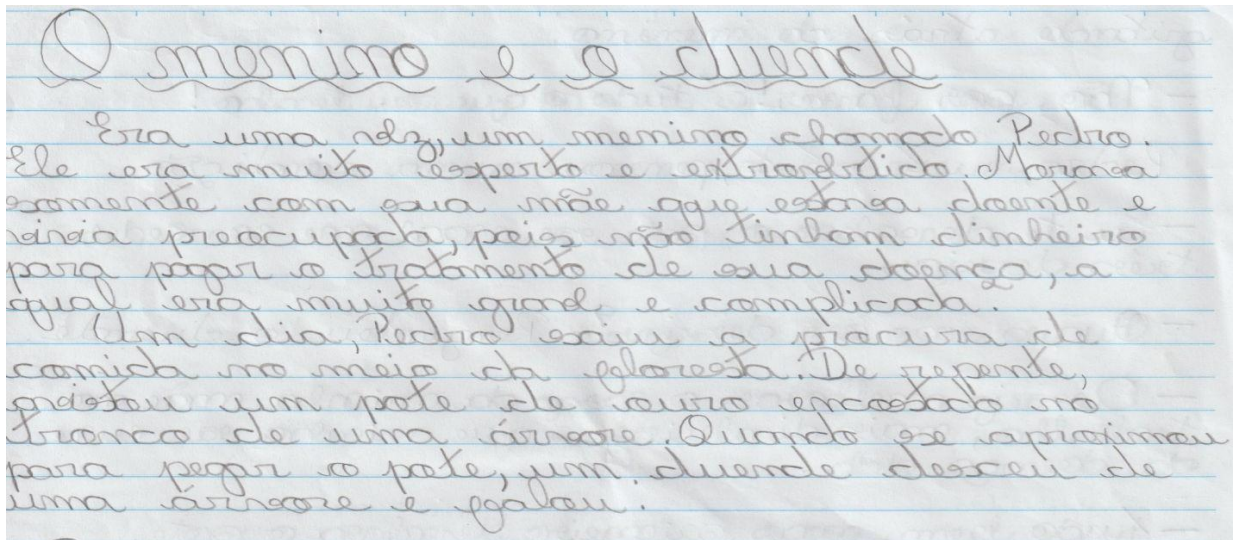 O menino e o duende
Era uma vez, um menino chamado Pedro.
Ele era muito esperto e extrovértido. Morava
somente com sua mãe que estava doente e
vivia preocupada, pois não tinham dinheiro
para pagar o tratamento de sua doença, a
qual era muito grave e complicada.
Um dia, Pedro saiu a procura de
comida no meio da floresta. De repente,
avistou um pote de ouro encostado no
tronco de uma árvore. Quando se aproximou
para pegar o pote, um duende desceu de
uma árvore e falou.